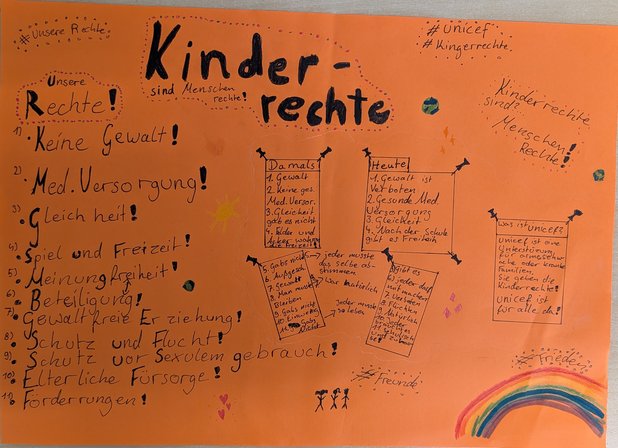 #Unsere Rechte
Kinder-
rechte
sind Menschen
rechte!
#unicef
#Kingerrechte
Kinderrechte
sind?
Menschen
Rechte!
Unsere
Rechte!
1) Keine Gewalt!
2) Med. Versorgung!
3) Gleich heit!
4) Spiel und Freizeit!
5) Meinungfreiheit!
6) Beteiligung!
7) Gewaltfreie Erziehung!
8) Schutz und Flucht!
9) Schutz vor Sexulem gebrauch!
10) Elterliche Fürsorge!
11) Förderrungen!
Damals
1. Gewalt
2. Keine ges.
Med. Versor.
3. Gleicheit
gab es nicht
4. Felder und
die Freizeit!
5. Gabs nicht
6. Aufgesch.
7. Gewalt
8. Man musste
Bleiben
9. Gabs nicht
11. Gabs
Nicht
jeder musste
das selbe ab-
stimmen
war Natürlich
jeder musste
so leben
Heute!
1. Gewalt ist
Verboten
2. Gesunde Med.
Versorgung
3. Gleicheit
4. Nach der Schule
gibt es Freiheit
gibt es
6. jeder darf
7. Verboten
9. Natürlich
was ist unicef?
unicef ist eine
Unterstützung
für
oder kranke
Familien.
Sie geben die
Kinderrechte!
unicef ist
für alle da!
#Freunde
#Frieden